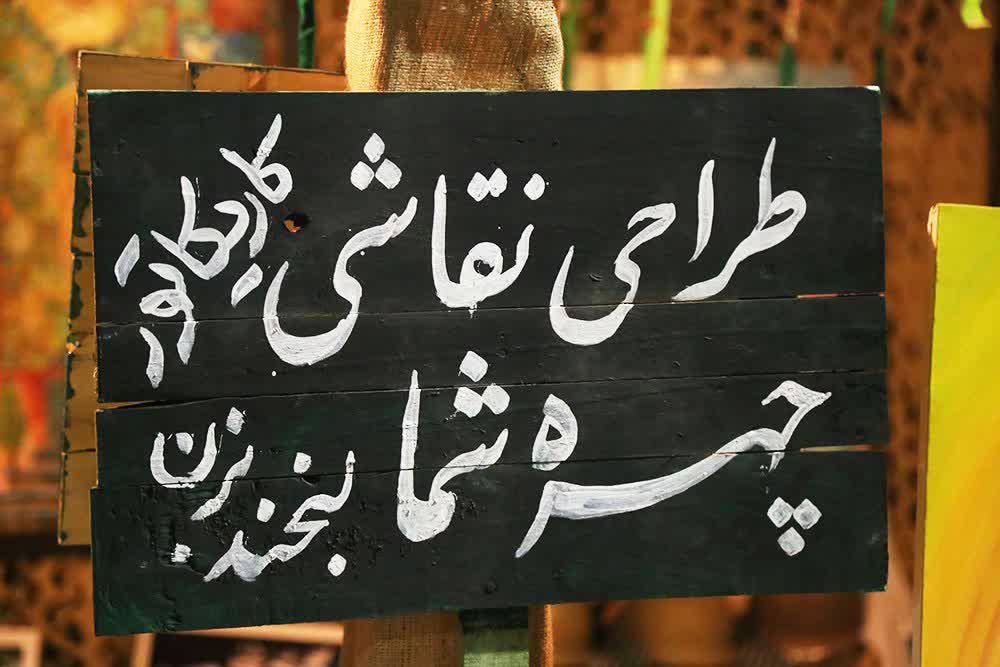 طراحی نقاشی کاریکاتور
چهره شما لبخند بزن